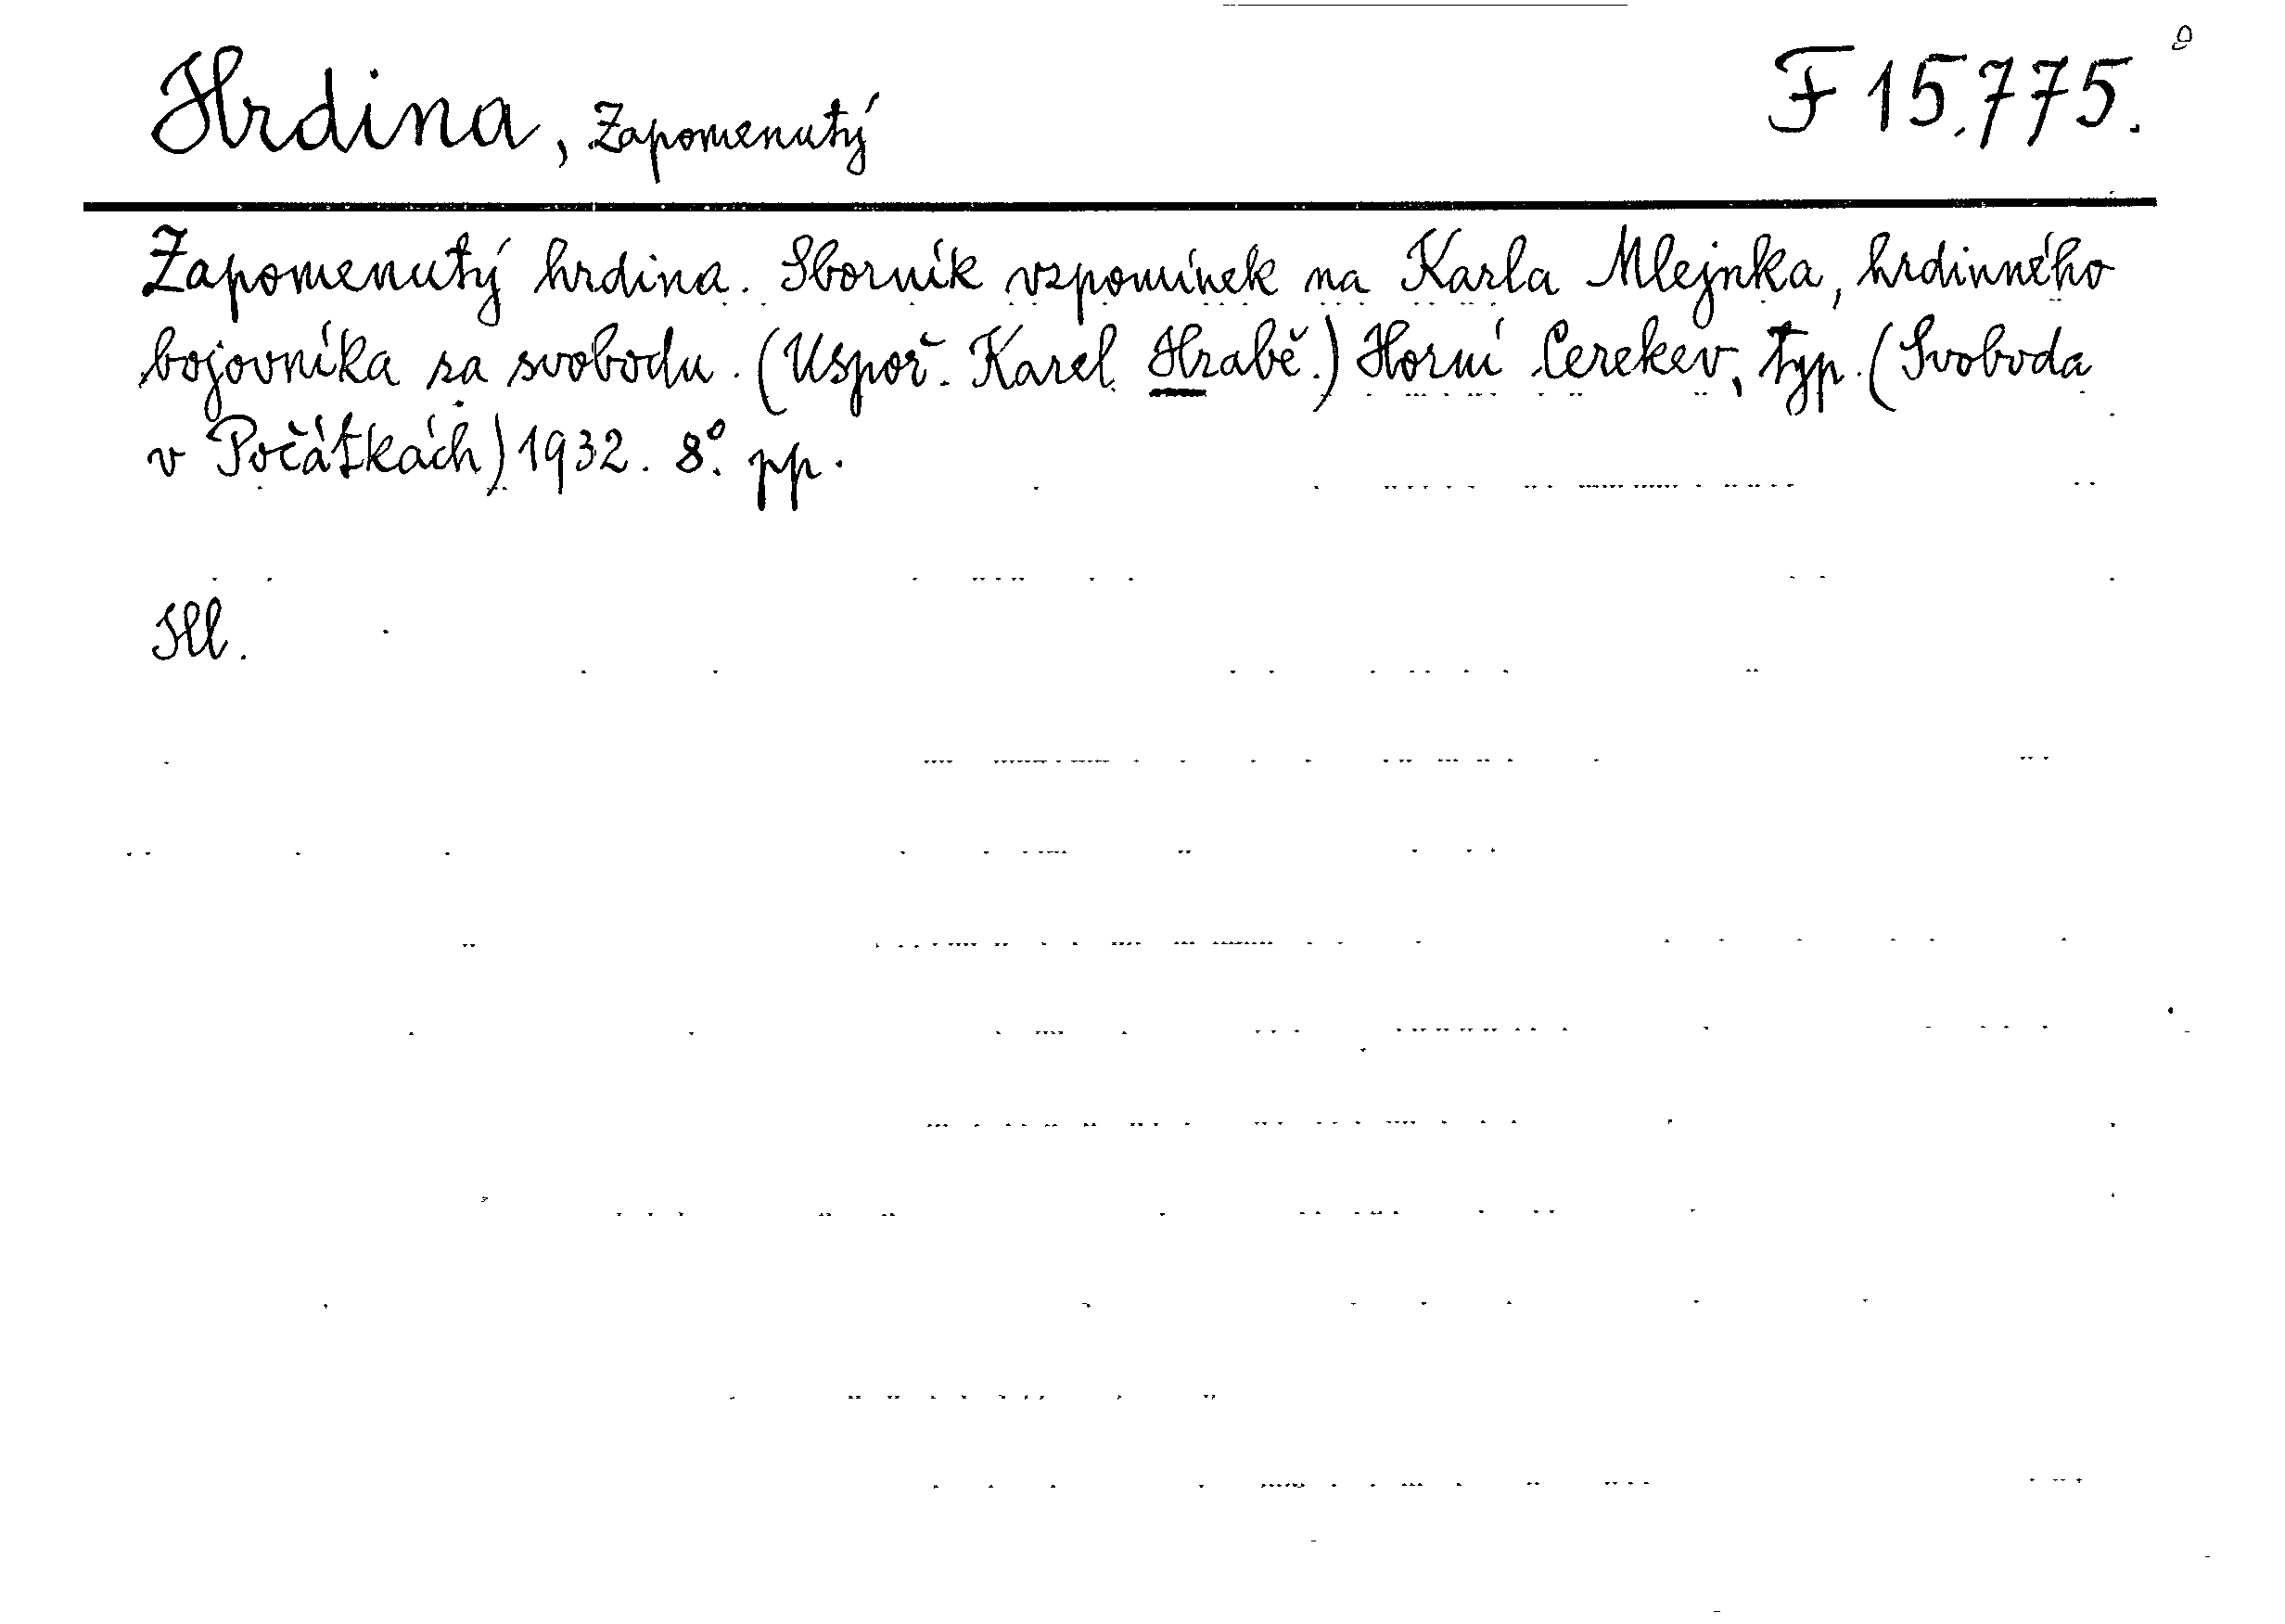 Hrdina, Zapomenutý F 15.775.
Zapomenutý hrdina. Sborník vzpomínek na Karla Mlejnka, hrdinného
bojovníka za svobodu. (Uspoř. Karel Hrabě.) Horní Cerekev, typ. (Svoboda
v Počátkách) 1932. 8°. pp.
Hl.